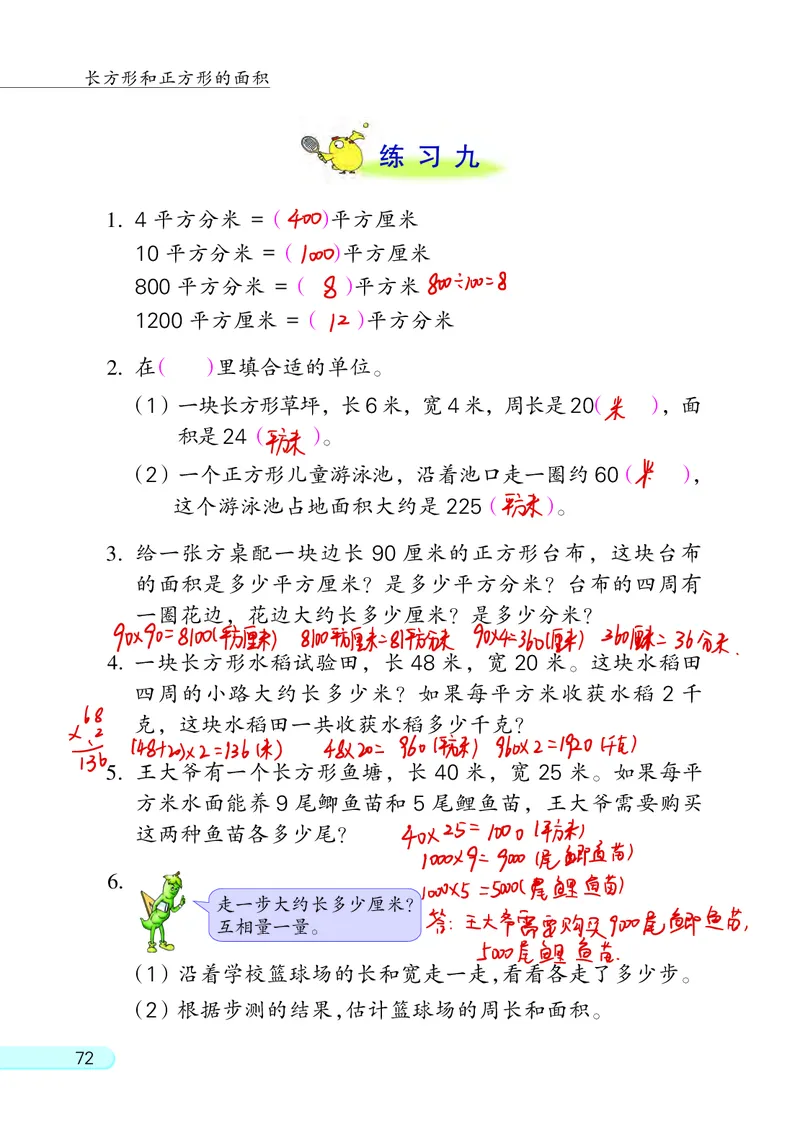 长方形和正方形的面积
练 习 九
1. 4 平方分米 = ( 400 )平方厘米
10 平方分米 = ( 1000 )平方厘米
800 平方分米 = ( 8 )平方米 800÷100=8
1200 平方厘米 = ( 12 )平方分米
2. 在( )里填合适的单位。
(1) 一块长方形草坪，长 6 米，宽 4 米，周长是 20( 米 )，面
积是 24 ( 平方米 )。
(2) 一个正方形儿童游泳池，沿着池口走一圈约 60 ( 米 )，
这个游泳池占地面积大约是 225 ( 平方米 )。
3. 给一张方桌配一块边长 90 厘米的正方形台布，这块台布
的面积是多少平方厘米？是多少平方分米？台布的四周有
一圈花边，花边大约长多少厘米？是多少分米？
90×90=8100(平方厘米) 8100平方厘米=81平方分米 90×4=360(厘米) 360厘米=36分米.
4. 一块长方形水稻试验田，长 48 米，宽 20 米。这块水稻田
四周的小路大约长多少米？如果每平方米收获水稻 2 千
克，这块水稻田一共收获水稻多少千克？
68
×2
136
(48+20)×2=136(米) 48×20= 960(平方米) 960×2=1920(千克)
5. 王大爷有一个长方形鱼塘，长 40 米，宽 25 米。如果每平
方米水面能养 9 尾鲫鱼苗和 5 尾鲤鱼苗，王大爷需要购买
这两种鱼苗各多少尾？
40×25=1000(平方米)
1000×9=9000(尾鲫鱼苗)
1000×5=5000(尾鲤鱼苗)
答: 王大爷需要购买9000尾鲫鱼苗,
5000尾鲤鱼苗.
6.
走一步大约长多少厘米？
互相量一量。
(1) 沿着学校篮球场的长和宽走一走，看看各走了多少步。
(2) 根据步测的结果，估计篮球场的周长和面积。
72